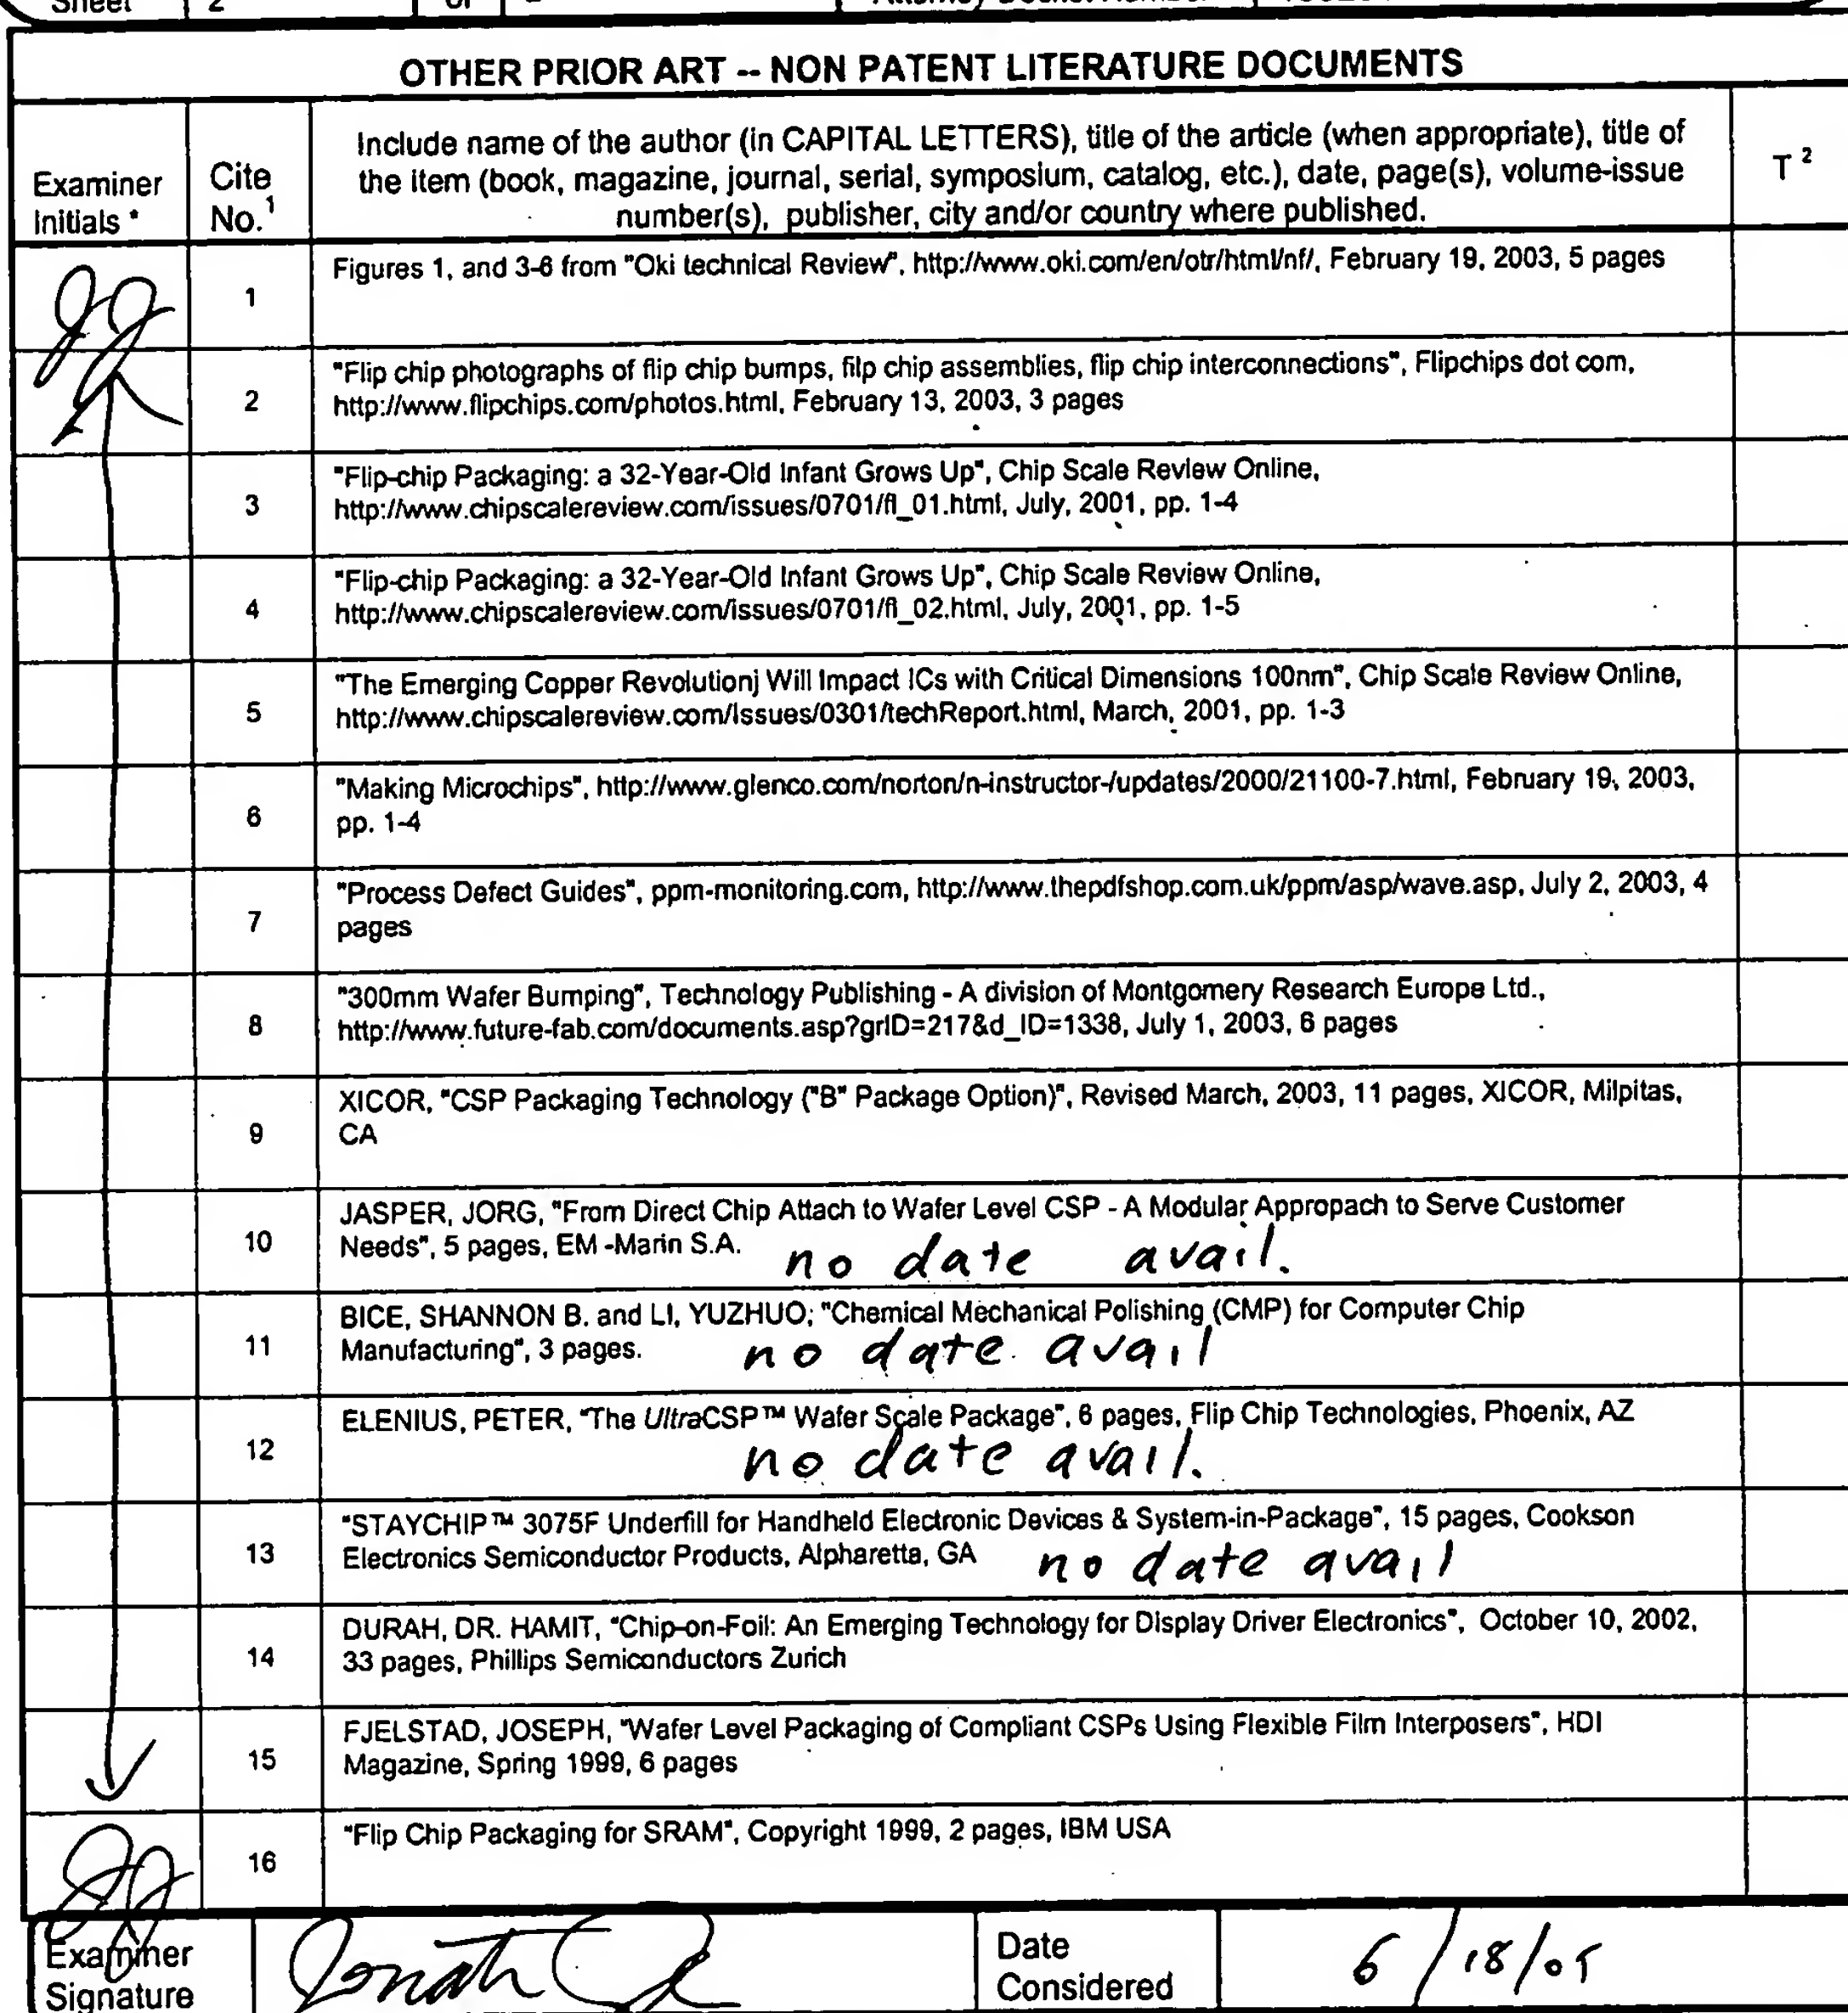 Sheet 2 of
OTHER PRIOR ART -- NON PATENT LITERATURE DOCUMENTS
Examiner Initials *
Cite No.1
Include name of the author (in CAPITAL LETTERS), title of the article (when appropriate), title of
the item (book, magazine, journal, serial, symposium, catalog, etc.), date, page(s), volume-issue
number(s), publisher, city and/or country where published.
T 2
1
Figures 1, and 3-6 from "Oki technical Review", http://www.oki.com/en/otr/html/nf/, February 19, 2003, 5 pages
2
"Flip chip photographs of flip chip bumps, filp chip assemblies, flip chip interconnections", Flipchips dot com,
http://www.flipchips.com/photos.html, February 13, 2003, 3 pages
3
"Flip-chip Packaging: a 32-Year-Old Infant Grows Up", Chip Scale Review Online,
http://www.chipscalereview.com/issues/0701/fl_01.html, July, 2001, pp. 1-4
4
"Flip-chip Packaging: a 32-Year-Old Infant Grows Up", Chip Scale Review Online,
http://www.chipscalereview.com/issues/0701/fl_02.html, July, 2001, pp. 1-5
5
"The Emerging Copper Revolutionj Will Impact ICs with Critical Dimensions 100nm", Chip Scale Review Online,
http://www.chipscalereview.com/issues/0301/techReport.html, March, 2001, pp. 1-3
6
"Making Microchips", http://www.glenco.com/norton/n-instructor-/updates/2000/21100-7.html, February 19, 2003,
pp. 1-4
7
"Process Defect Guides", ppm-monitoring.com, http://www.thepdfshop.com.uk/ppm/asp/wave.asp, July 2, 2003, 4
pages
8
"300mm Wafer Bumping", Technology Publishing - A division of Montgomery Research Europe Ltd.,
http://www.future-fab.com/documents.asp?grID=217&d_ID=1338, July 1, 2003, 6 pages
9
XICOR, "CSP Packaging Technology ("B" Package Option)", Revised March, 2003, 11 pages, XICOR, Milpitas,
CA
10
JASPER, JORG, "From Direct Chip Attach to Wafer Level CSP - A Modular Appropach to Serve Customer
Needs", 5 pages, EM -Marin S.A. no date avail.
11
BICE, SHANNON B. and LI, YUZHUO; "Chemical Mechanical Polishing (CMP) for Computer Chip
Manufacturing", 3 pages. no date avail
12
ELENIUS, PETER, "The UltraCSP™ Wafer Scale Package", 6 pages, Flip Chip Technologies, Phoenix, AZ
no date avail.
13
"STAYCHIP™ 3075F Underfill for Handheld Electronic Devices & System-in-Package", 15 pages, Cookson
Electronics Semiconductor Products, Alpharetta, GA no date avail
14
DURAH, DR. HAMIT, "Chip-on-Foil: An Emerging Technology for Display Driver Electronics", October 10, 2002,
33 pages, Phillips Semiconductors Zurich
15
FJELSTAD, JOSEPH, "Wafer Level Packaging of Compliant CSPs Using Flexible Film Interposers", HDI
Magazine, Spring 1999, 6 pages
16
"Flip Chip Packaging for SRAM", Copyright 1999, 2 pages, IBM USA
Examiner
Signature
Date
Considered
6/18/05